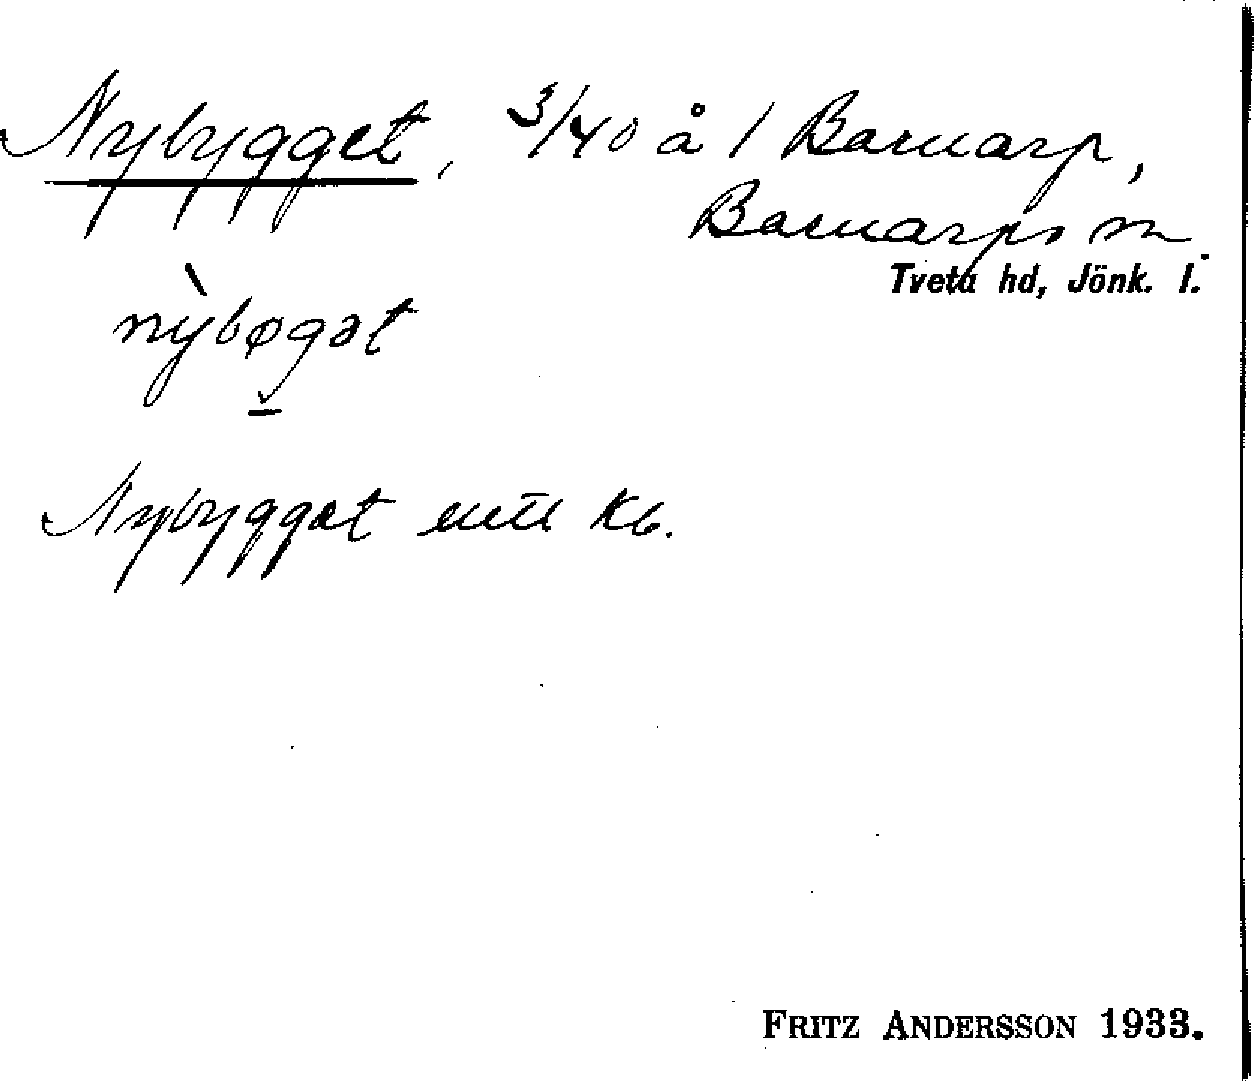 Nybygget, 3/40 å 1 Barnarp,
Barnarps sn.
Tveta hd, Jönk. l.
nỳbøgət
Nybygget enl Kb.
FRITZ ANDERSSON 1933.